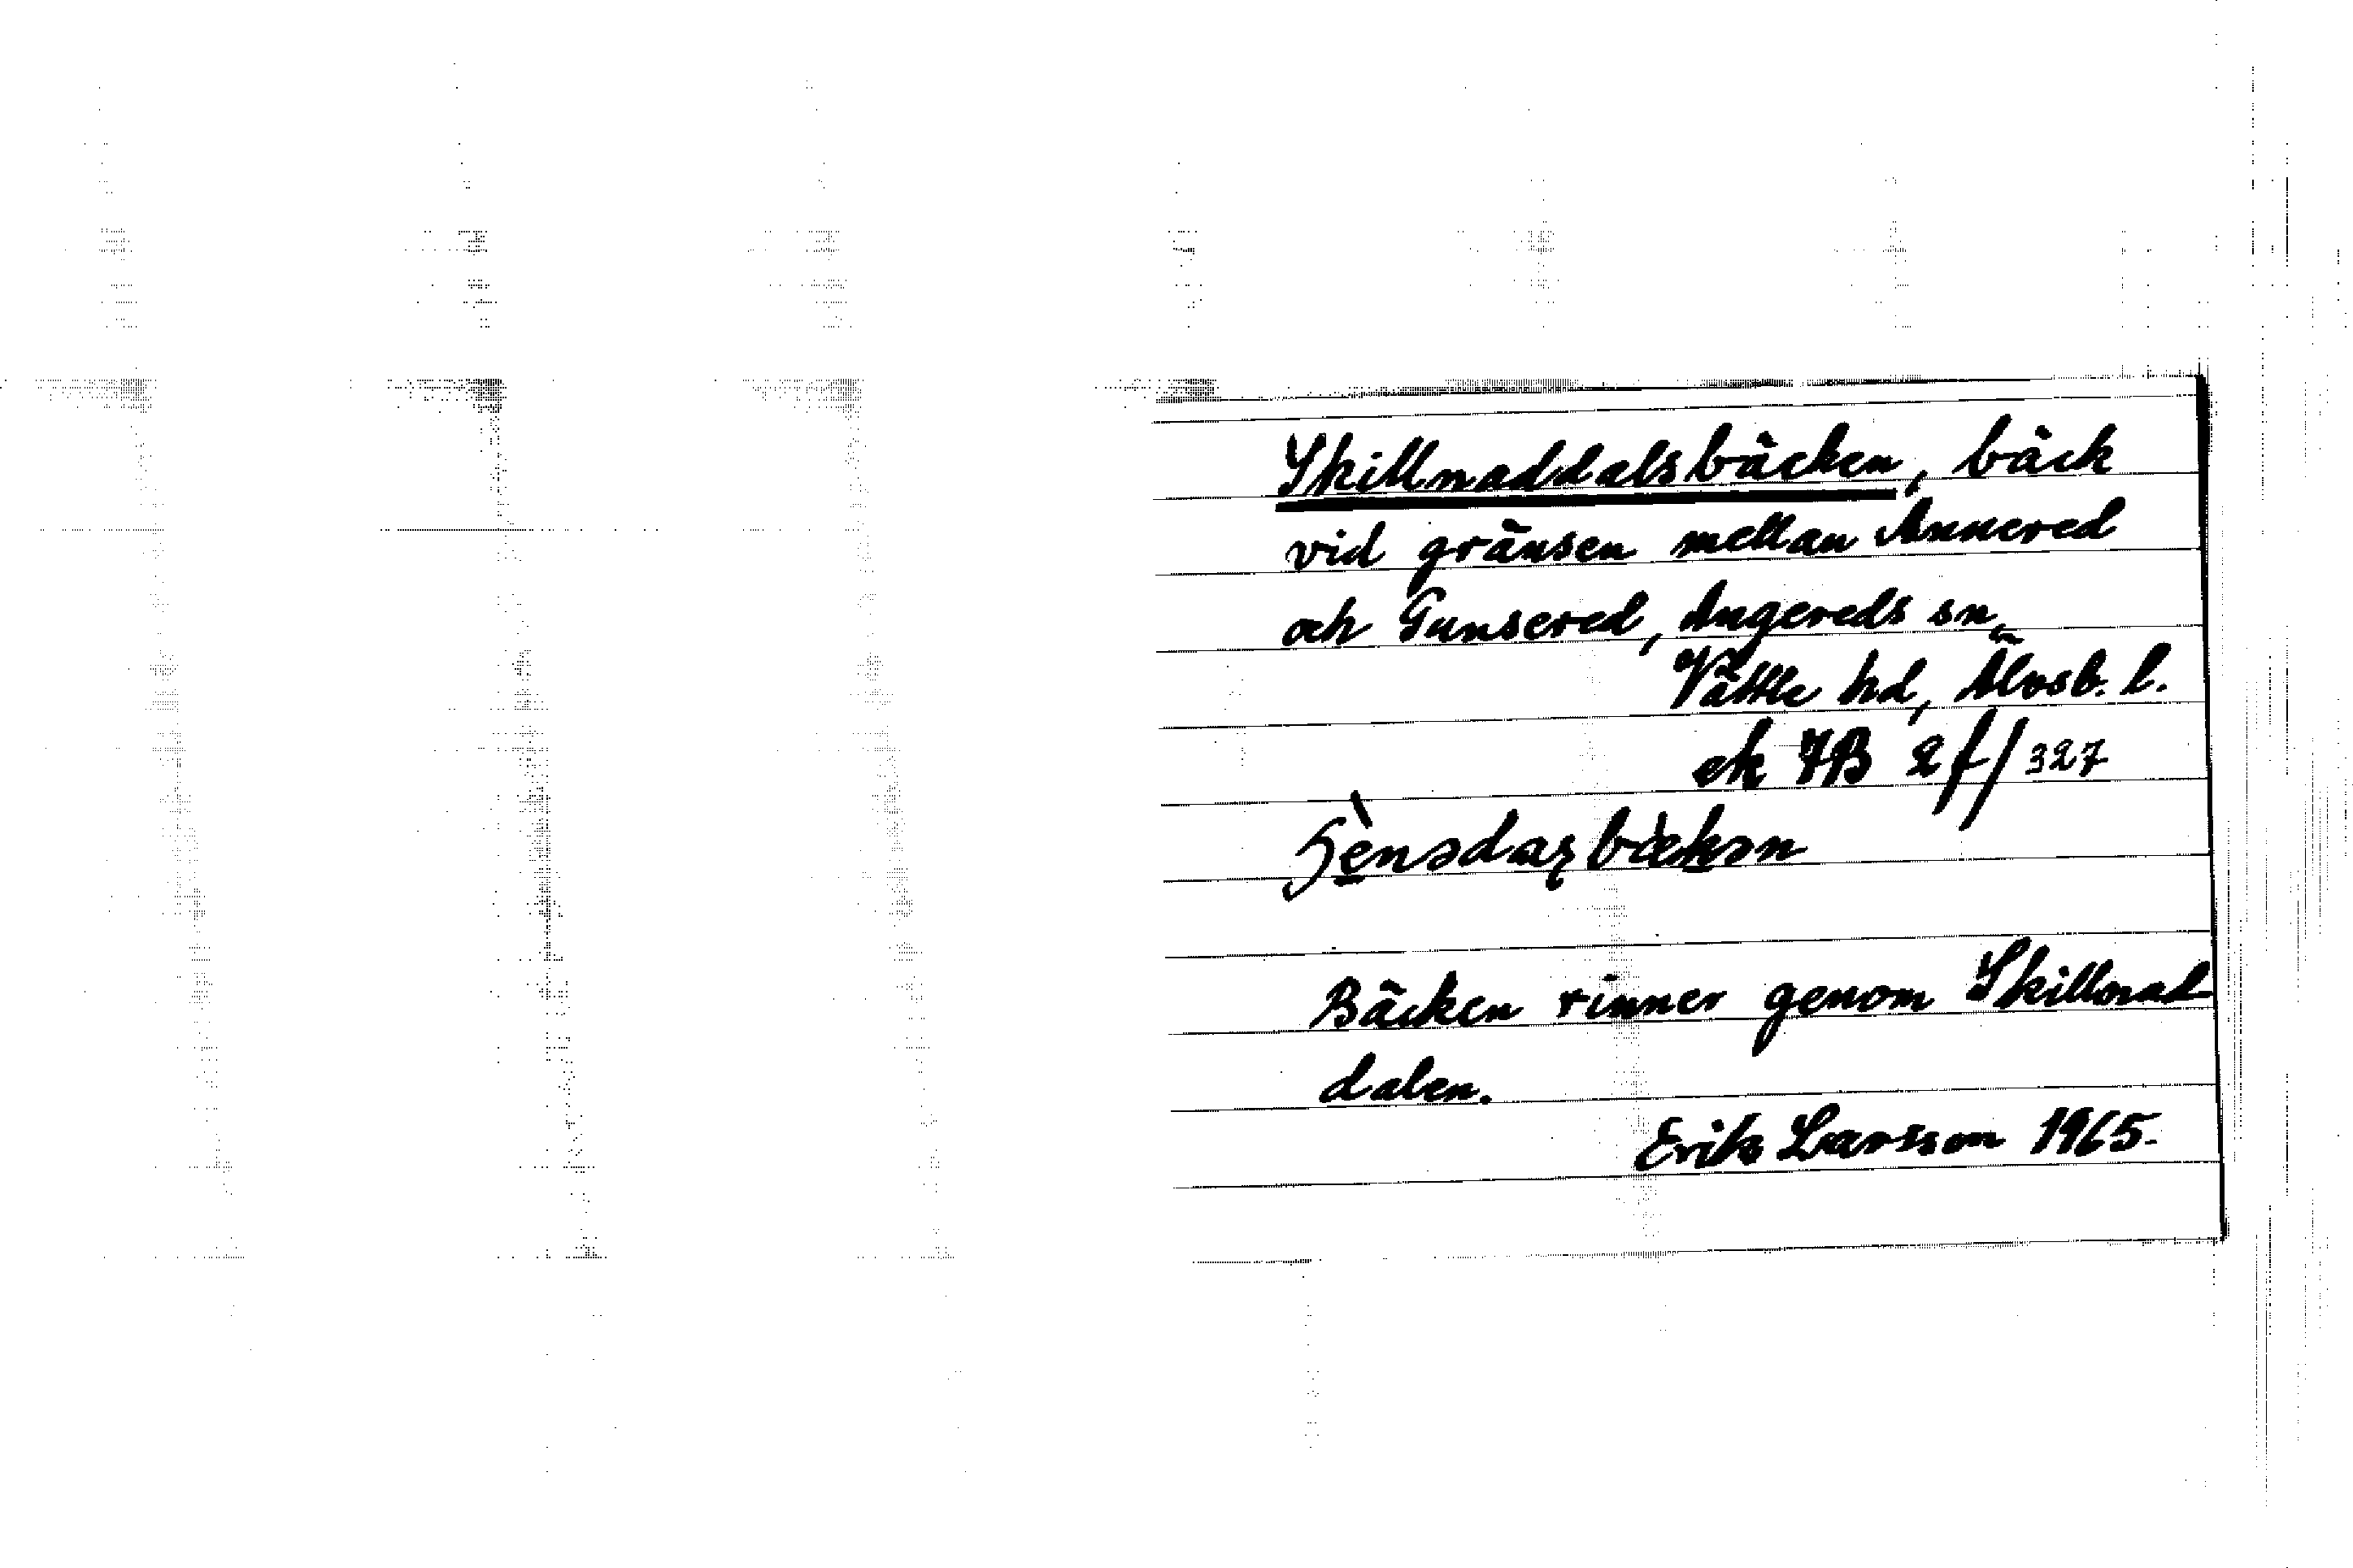 Skillnaddalsbäcken, bäck
vid gränsen mellan Annered
och Gunsered, Angereds sn,
Vättle hd, Älvsb. l.
ek 7B 2f/327
Bäcken rinner genom Skillnad
dalen.
Erik Larsson 1965.